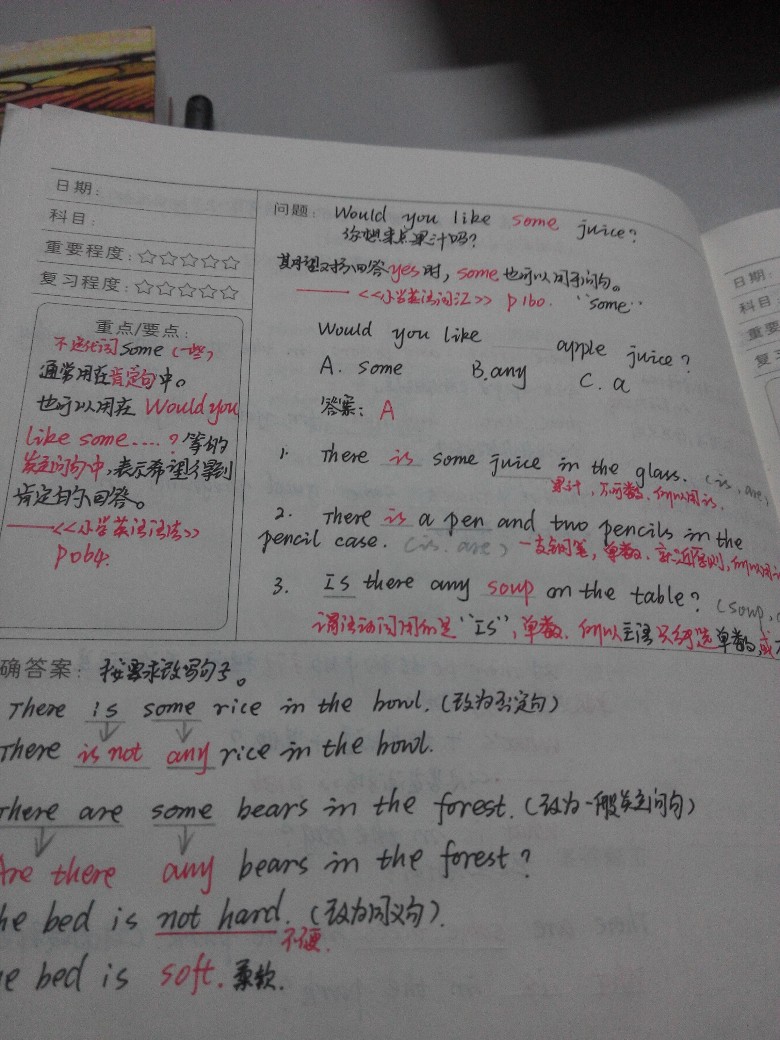 日期：
科目：
重要程度：☆☆☆☆☆
复习程度：☆☆☆☆☆
重点/要点：
不定代词some（一些）
通常用在肯定句中。
也可以用在 Would you
like some....？等的
疑问句中，表示希望得到
肯定的回答。
——<<小学英语语法>>
P064.
问题： Would you like some juice?
你想来点果汁吗？
其期望对方回答yes时，some也可以用于问句。
——<<小学英语词汇>> P160. "some"
Would you like apple juice?
A. some B.any C. a
答案： A
1. There is some juice in the glass. (is, are)
果汁，不可数，所以用is.
2. There is a pen and two pencils in the
pencil case. (is. are) 一支钢笔，单数，就近原则，所以用
3. Is there any soup on the table? (soup,
谓语动词用的是"Is"，单数，所以主语只能选单数或
确答案： 按要求改写句子。
There is some rice in the bowl. (改为否定句)
There is not any rice in the bowl.
There are some bears in the forest. (改为一般疑问句)
Are there any bears in the forest?
he bed is not hard. (改为同义句).
不硬.
e bed is soft. 柔软.
日期：
科目
重要
复